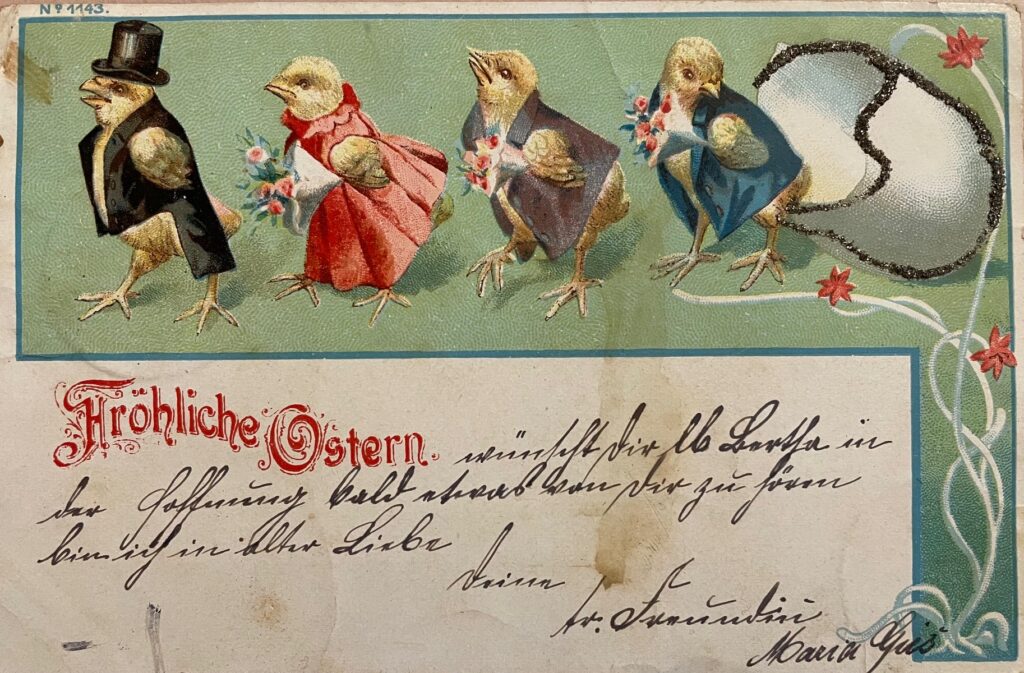 Nº 1143.
Fröhliche Ostern. wünscht Dir lb Bertha in
der Hoffnung bald etwas von Dir zu hören
bin ich in alter Liebe
Deine
tr. Freundin
Maria